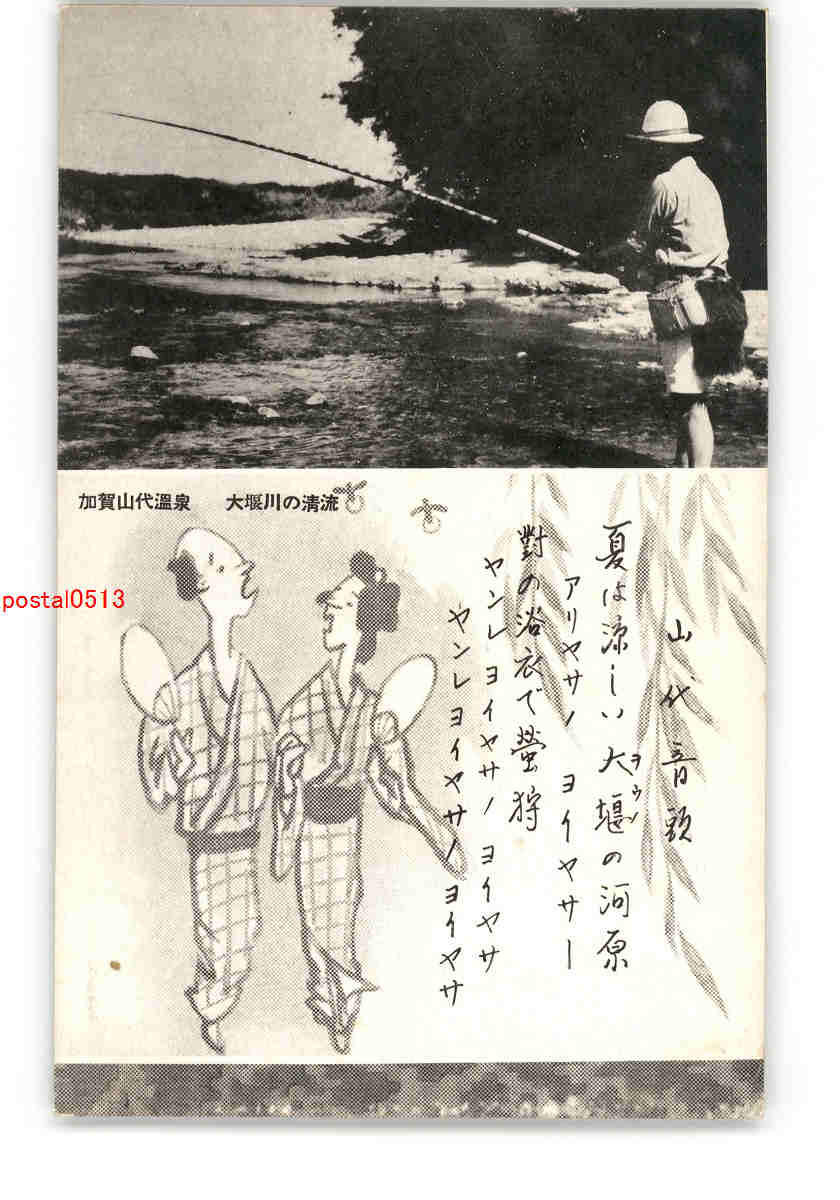 加賀山代溫泉 大堰川の清流
山代音頭
夏は涼しい大堰の河原
ヲウノ
アリヤサノ ヨイヤサー
對の浴衣で螢狩
ヤンレヨイヤサノ ヨイヤサ
ヤンレヨイヤサノヨイヤサ
postal0513